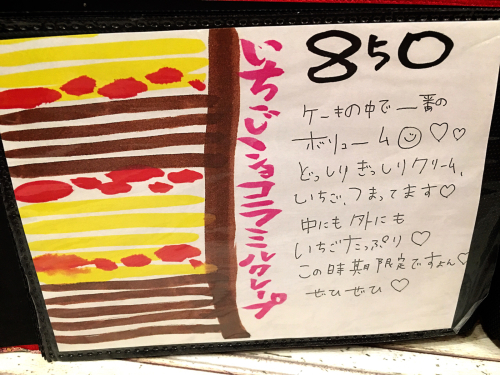 いちごショコラミルクレープ
850
ケーキの中で一番の
ボリューム☺♡♡
どっしりぎっしりクリーム、
いちご、つまってます♡
中にも外にも
いちごたっぷり♡
この時期限定ですよん♡
ぜひぜひ♡